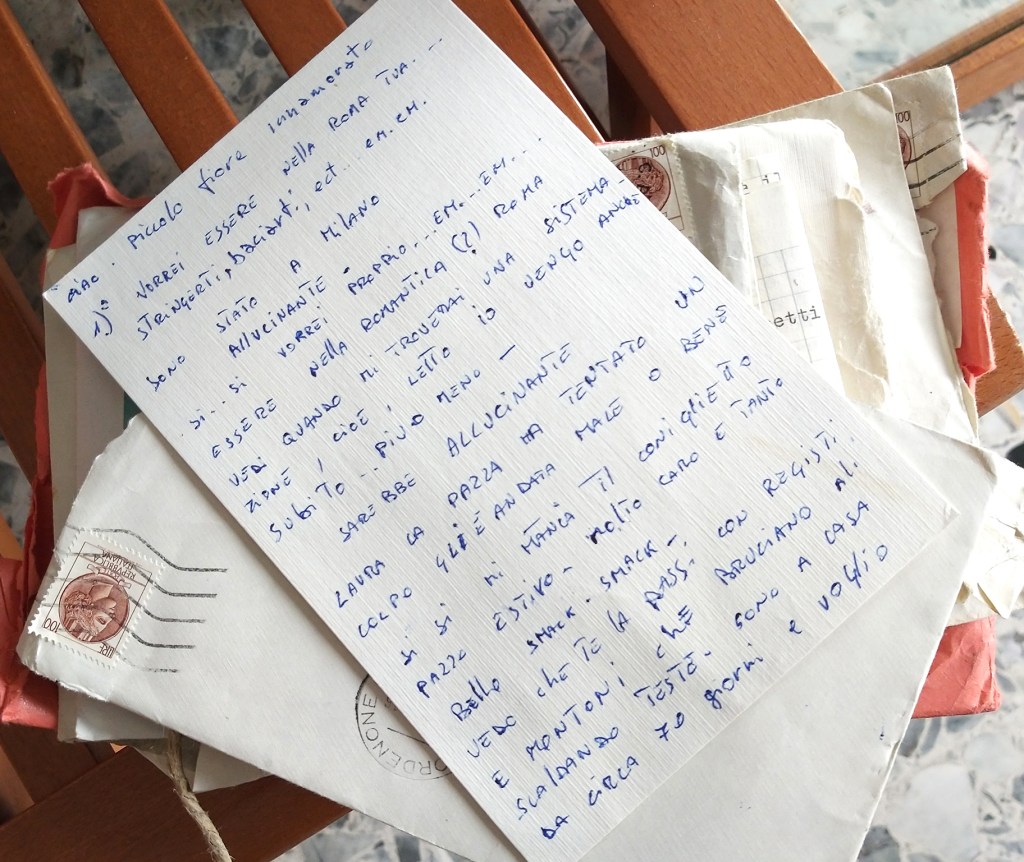 ciao. Piccolo fiore innamorato
1)° VORREI ESSERE NELLA ROMA TUA...
STRINGERTI, baciart., ect... em. em.
SONO STATO A MILANO
ALLUCINANTE PROPRIO... EM... EM....
SI... SI VORREI
ESSERE NELLA ROMANTICA (?) ROMA
VEDI QUANDO MI TROVERAI UNA SISTEMA
ZIONE, CIOÈ, LETTO IO VENGO ANCHE
SUBITO... PIÙ O MENO -
SAREBBE ALLUCINANTE
LAURA LA PAZZA HA TENTATO UN
COLPO GLI È ANDATA MALE O BENE
SI SI MI MANCA IL CONIGLIETTO
PAZZO ESTIVO - MOLTO CARO E TANTO
BELLO SMACK - SMACK -
VEDO CHE TE LA PASSI CON REGISTI
E MONTONI CHE BRUCIANO ALI
SCALDANDO TESTE - SONO A CASA
DA CIRCA 70 giorni e voglio
REPUBBLICA ITALIANA
LIRE 100
ORDENONE
100
100
etti